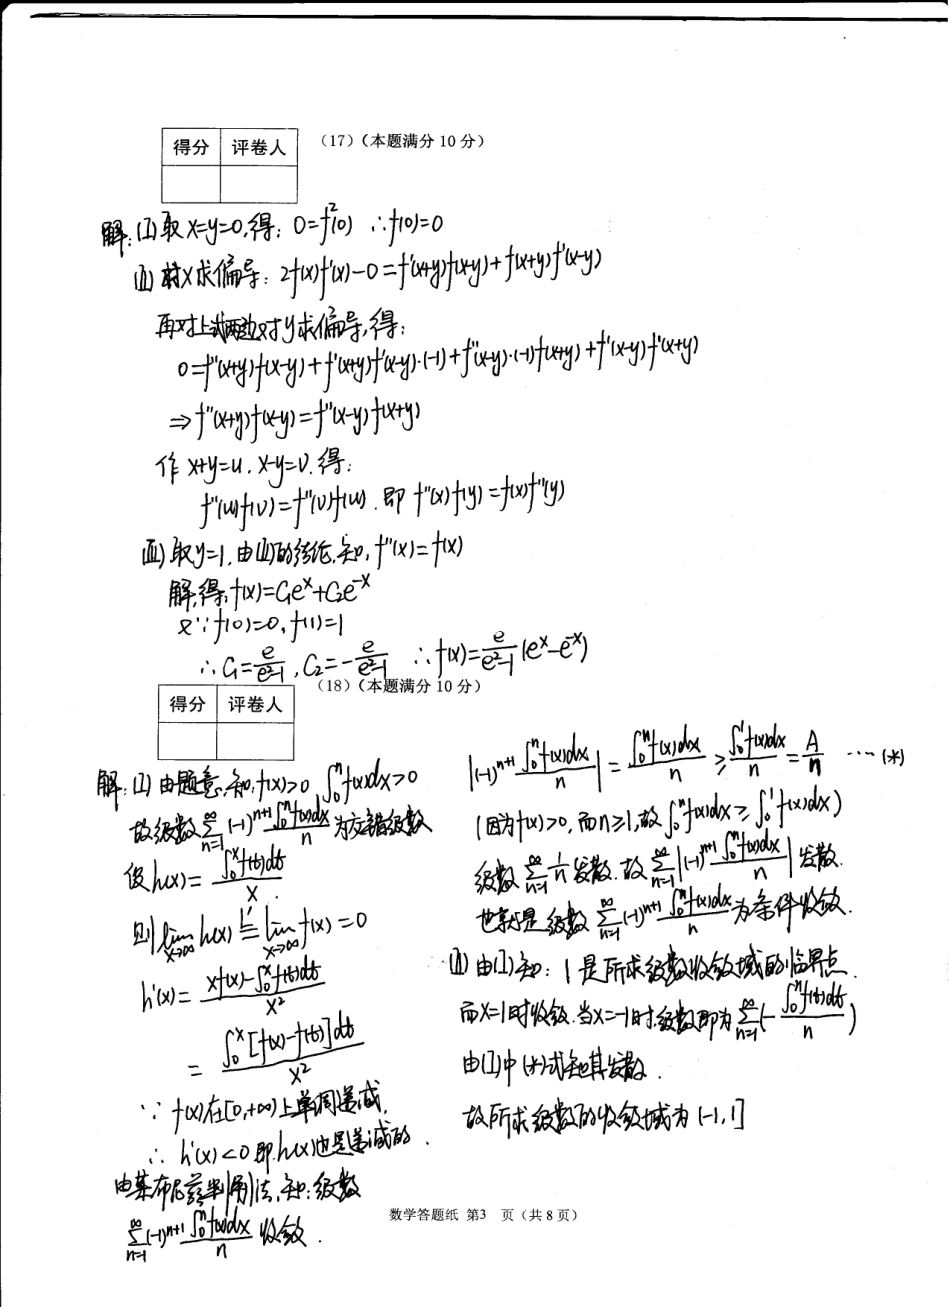 得分 评卷人 (17)(本题满分10分)
解:(Ⅰ)取x=y=0,得: 0=f²(0) ∴f(0)=0
(Ⅱ)对x求偏导: 2f(x)f'(x)-0=f'(x+y)f(x-y)+f(x+y)f'(x-y)
再对上式两边对y求偏导,得:
0=f''(x+y)f(x-y)+f'(x+y)f'(x-y)·(-1)+f''(x-y)·(-1)f(x+y)+f'(x-y)f'(x+y)
⇒f''(x+y)f(x-y)=f''(x-y)f(x+y)
作 x+y=u, x-y=v, 得:
f''(u)f(v)=f''(v)f(u). 即 f''(x)f(y)=f(x)f''(y)
(Ⅲ)取y=1,由(Ⅱ)的结论,知, f''(x)=f(x)
解得, f(x)=C₁eˣ+C₂e⁻ˣ
又∵f(0)=0, f(1)=1
∴C₁=e/(e²-1), C₂=-e/(e²-1) ∴f(x)=e/(e²-1)(eˣ-e⁻ˣ)
得分 评卷人 (18)(本题满分10分)
解:(Ⅰ)由题意,知,f(x)>0, ∫₀ⁿf(x)dx>0
故级数∑_{n=1}^{∞}(-1)ⁿ⁺¹ ∫₀ⁿf(x)dx/n 为交错级数
设h(x)=∫₀ˣf(t)dt/x.
则 lim_{x→∞}h(x) =^{L'} lim_{x→∞}f(x)=0
h'(x)=(xf(x)-∫₀ˣf(t)dt)/x²
=∫₀ˣ[f(x)-f(t)]dt/x²
∵f(x)在[0,+∞)上单调递减,
∴h'(x)<0 即h(x)也是递减的.
由莱布尼兹判别法,知:级数
∑_{n=1}^{∞}(-1)ⁿ⁺¹ ∫₀ⁿf(x)dx/n 收敛.
|(-1)ⁿ⁺¹ ∫₀ⁿf(x)dx/n| = ∫₀ⁿf(x)dx/n ≥ ∫₀¹f(x)dx/n = A/n ……(*)
(因为f(x)>0,而n≥1,故∫₀ⁿf(x)dx≥∫₀¹f(x)dx)
级数∑_{n=1}^{∞}1/n发散.故∑_{n=1}^{∞}|(-1)ⁿ⁺¹ ∫₀ⁿf(x)dx/n|发散.
也就是级数∑_{n=1}^{∞}(-1)ⁿ⁺¹ ∫₀ⁿf(x)dx/n为条件收敛.
(Ⅱ)由(Ⅰ)知:1是所求级数收敛域的临界点.
而x=1时收敛.当x=-1时,级数即为∑_{n=1}^{∞}(-∫₀ⁿf(t)dt/n)
由(Ⅰ)中(*)式知其发散.
故所求级数的收敛域为(-1,1]
数学答题纸 第3 页(共8页)